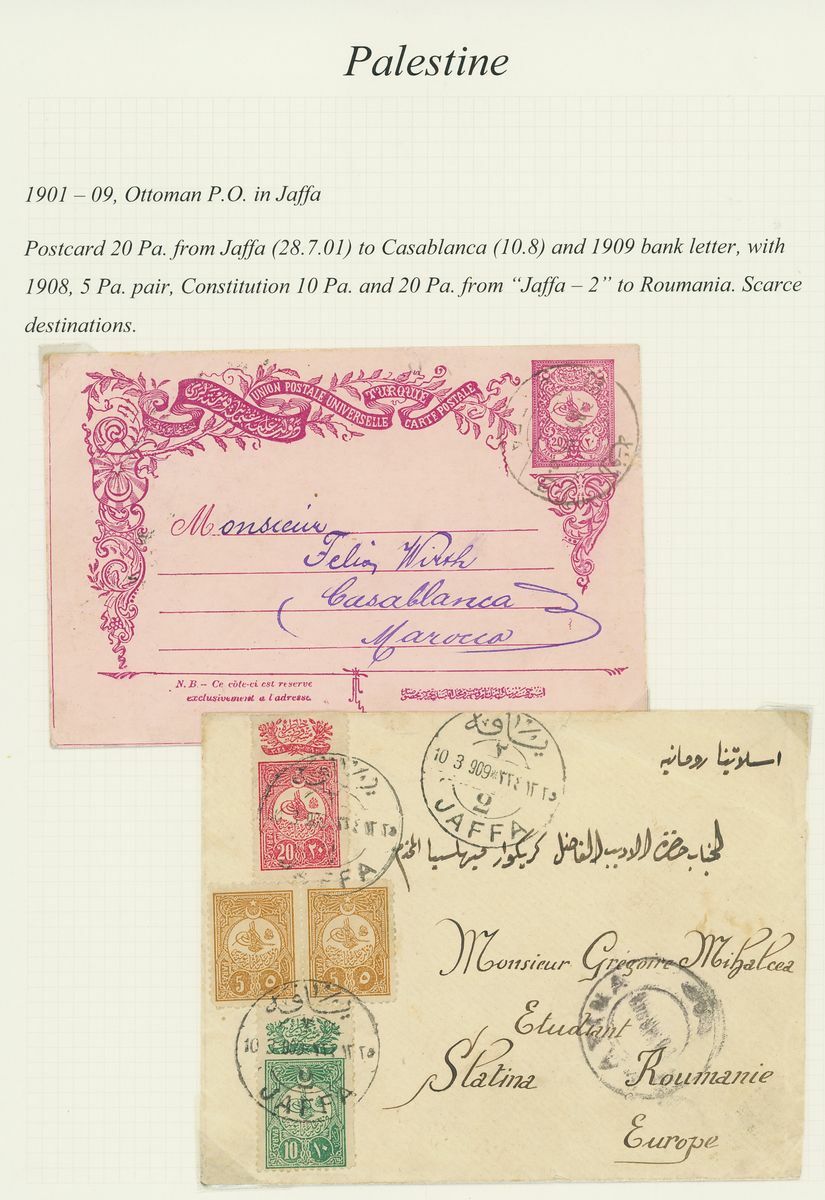 Palestine
1901 – 09, Ottoman P.O. in Jaffa
Postcard 20 Pa. from Jaffa (28.7.01) to Casablanca (10.8) and 1909 bank letter, with
1908, 5 Pa. pair, Constitution 10 Pa. and 20 Pa. from “Jaffa – 2” to Roumania. Scarce
destinations.
UNION POSTALE UNIVERSELLE
TURQUIE
CARTE POSTALE
20 ٢٠
Monsieur
Felix Wirth
Casablanca
Marocco
N. B. – Ce côte-ci est reserve
exclusivement a l'adresse.
يافه
٢
10 3 909
2
JAFFA
اسلاتينا رومانيه
20 ٢٠
JAFFA
لجناب حضرة الاديب الفاضل
5 ٥
5 ٥
Monsieur Grégoire Mihalcea
Etudiant
Slatina Roumanie
Europe
يافه
10 3 909
2
JAFFA
10 ١٠